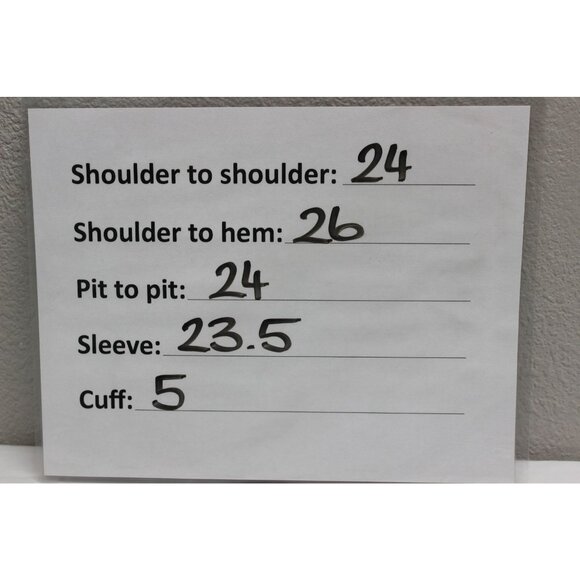 Shoulder to shoulder: 24
Shoulder to hem: 26
Pit to pit: 24
Sleeve: 23.5
Cuff: 5